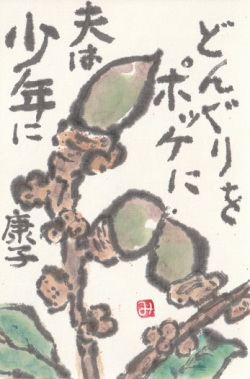 どんぐりを
ポッケに
夫は
少年に
康子
み